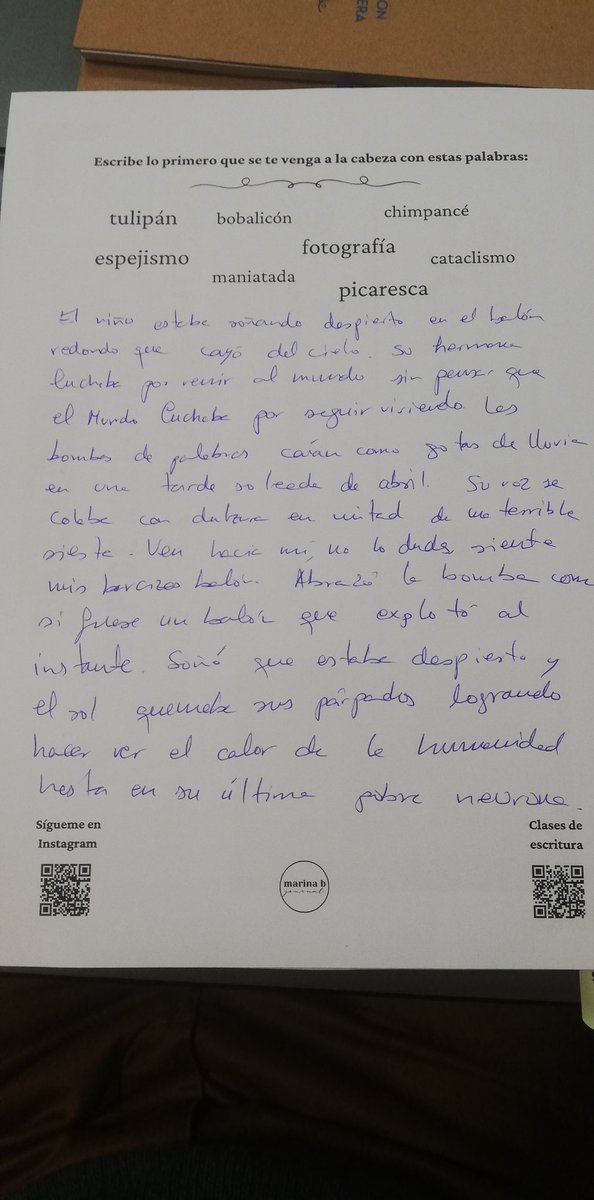 ON
ERA
de
Escribe lo primero que se te venga a la cabeza con estas palabras:
tulipán bobalicón chimpancé
espejismo fotografía cataclismo
maniatada picaresca
El niño estaba soñando despierto en el balón
redondo que cayó del cielo. Su hermana
luchaba por venir al mundo sin pensar que
el Mundo luchaba por seguir viviendo. Las
bombas de palabras caían como gotas de lluvia
en una tarde soleada de abril. Su voz se
colaba con dulzura en mitad de una terrible
siesta. Ven hacia mí, no lo dudes, siente
mis brazos balón. Abrazó la bomba como
si fuese un balón que explotó al
instante. Soñó que estaba despierto y
el sol quemaba sus párpados logrando
hacer ver el calor de la humanidad
hasta en su última pobre neurona.
Sígueme en
Instagram
marina b
journal
Clases de
escritura